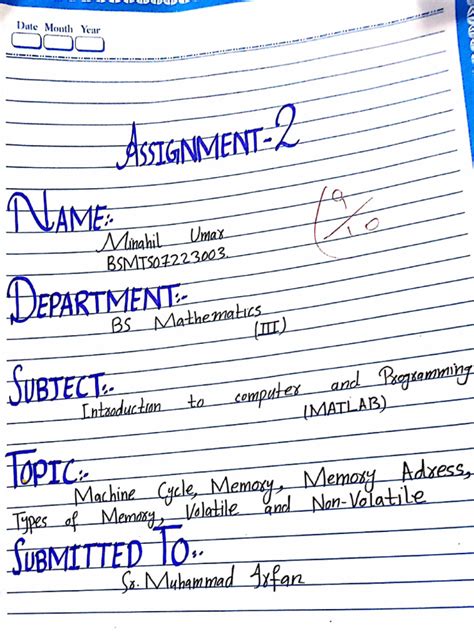 Date Month Year
ASSIGNMENT-2
NAME:-
Minahil Umar
BSMTS07223003.
9/10
DEPARTMENT:-
BS Mathematics
(III)
SUBJECT:-
Introduction to computer and Programming
(MATLAB)
TOPIC:-
Machine Cycle, Memory, Memory Adress,
Types of Memory, Volatile and Non-Volatile
SUBMITTED TO:-
Sr. Muhammad Irfan